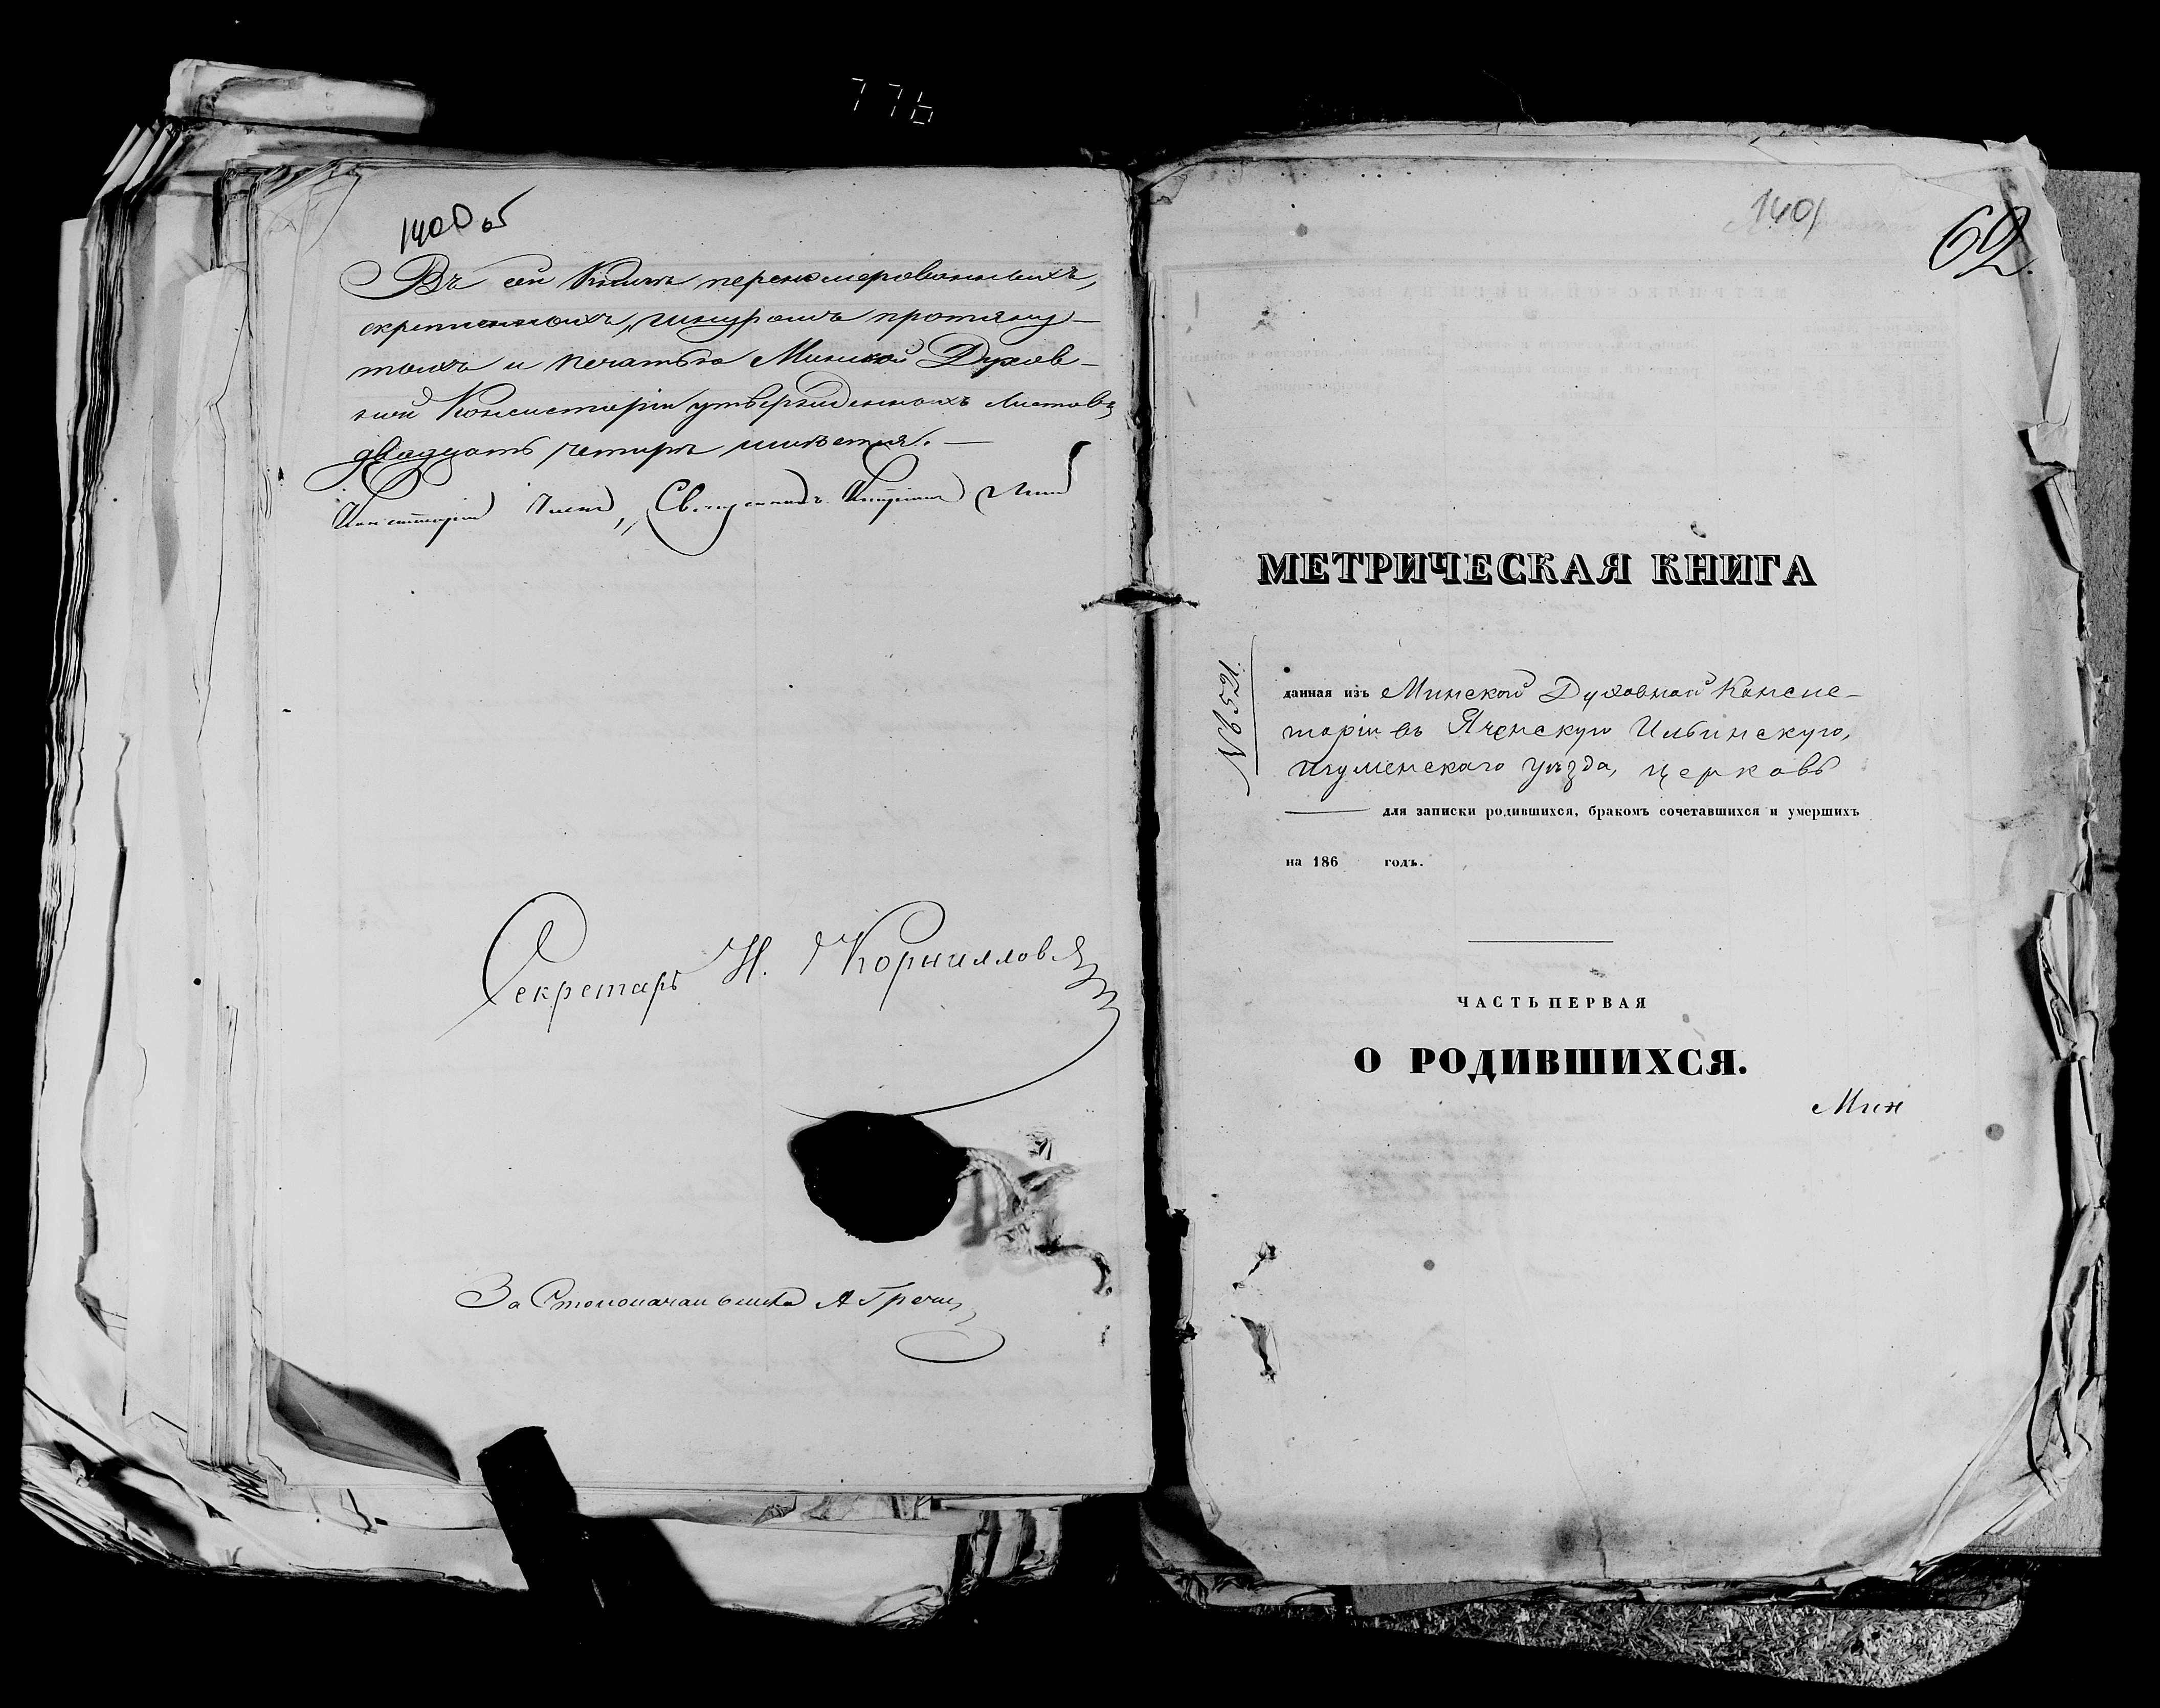 776
1400 об
Въ сей книгѣ перенумерованныхъ,
скрепленныхъ, шнуромъ протяну-
тыхъ и печатью Минской Духов-
ной Консисторіи утвержденныхъ листовъ
двадцать четыре имѣется. —
Консисторіи Членъ, Священникъ
Секретарь Н. Корниловъ
За Столоначальника А
1401
62.
МЕТРИЧЕСКАЯ КНИГА
№ 521.
данная изъ Минской Духовной Консис-
торіи въ Яченскую Ильинскую,
Игуменскаго уѣзда, церковь
для записки родившихся, бракомъ сочетавшихся и умершихъ
на 186 годъ.
ЧАСТЬ ПЕРВАЯ
О РОДИВШИХСЯ.
Мин